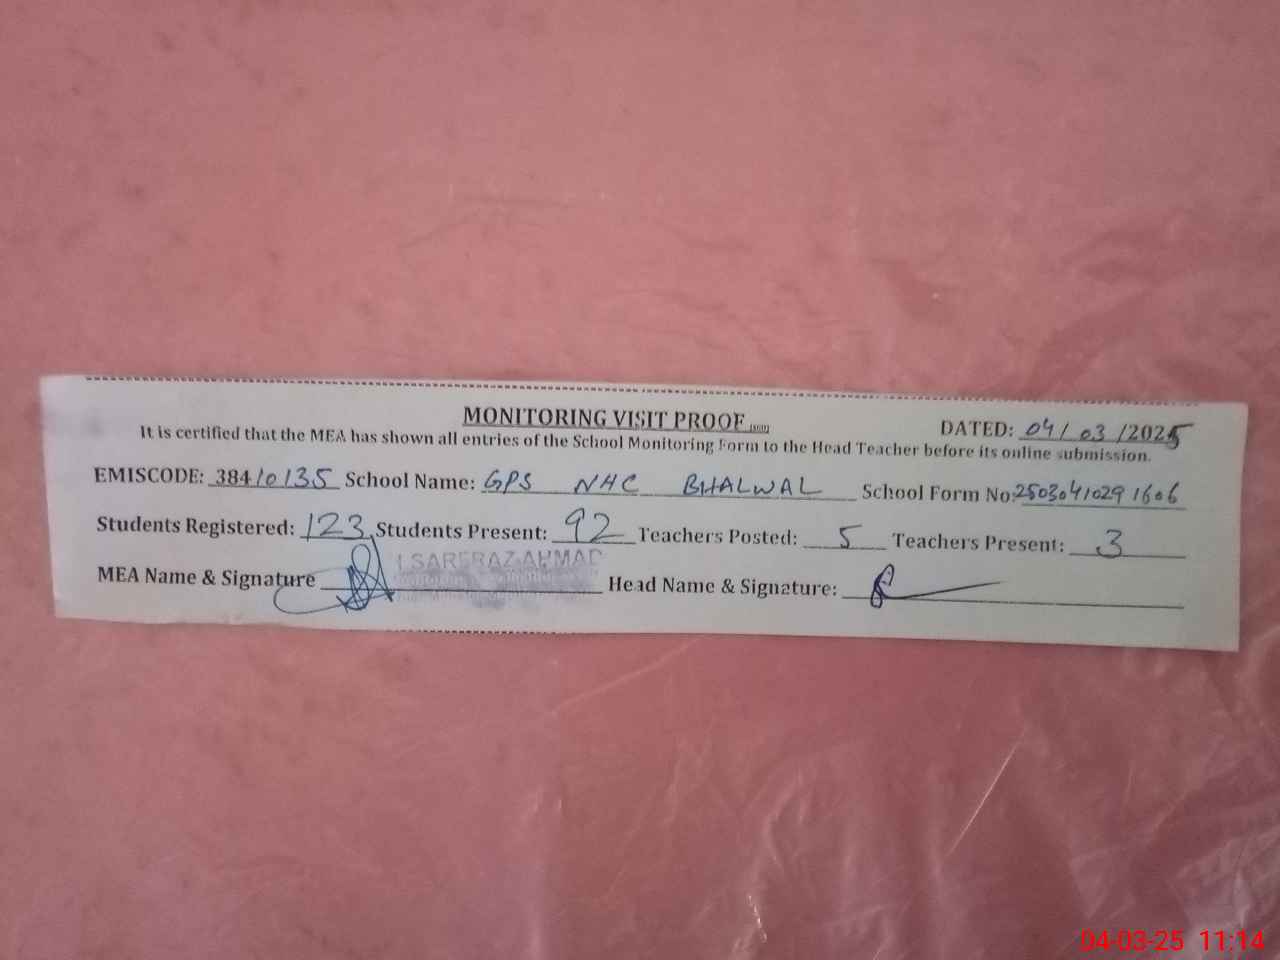 MONITORING VISIT PROOF
DATED: 04/03/2025
It is certified that the MEA has shown all entries of the School Monitoring Form to the Head Teacher before its online submission.
EMISCODE: 38410135 School Name: GPS NHC BHALWAL School Form No: 2503041029 1606
Students Registered: 123 Students Present: 92 Teachers Posted: 5 Teachers Present: 3
SARFRAZ AHMAD
MEA Name & Signature Head Name & Signature:
04-03-25 11:14